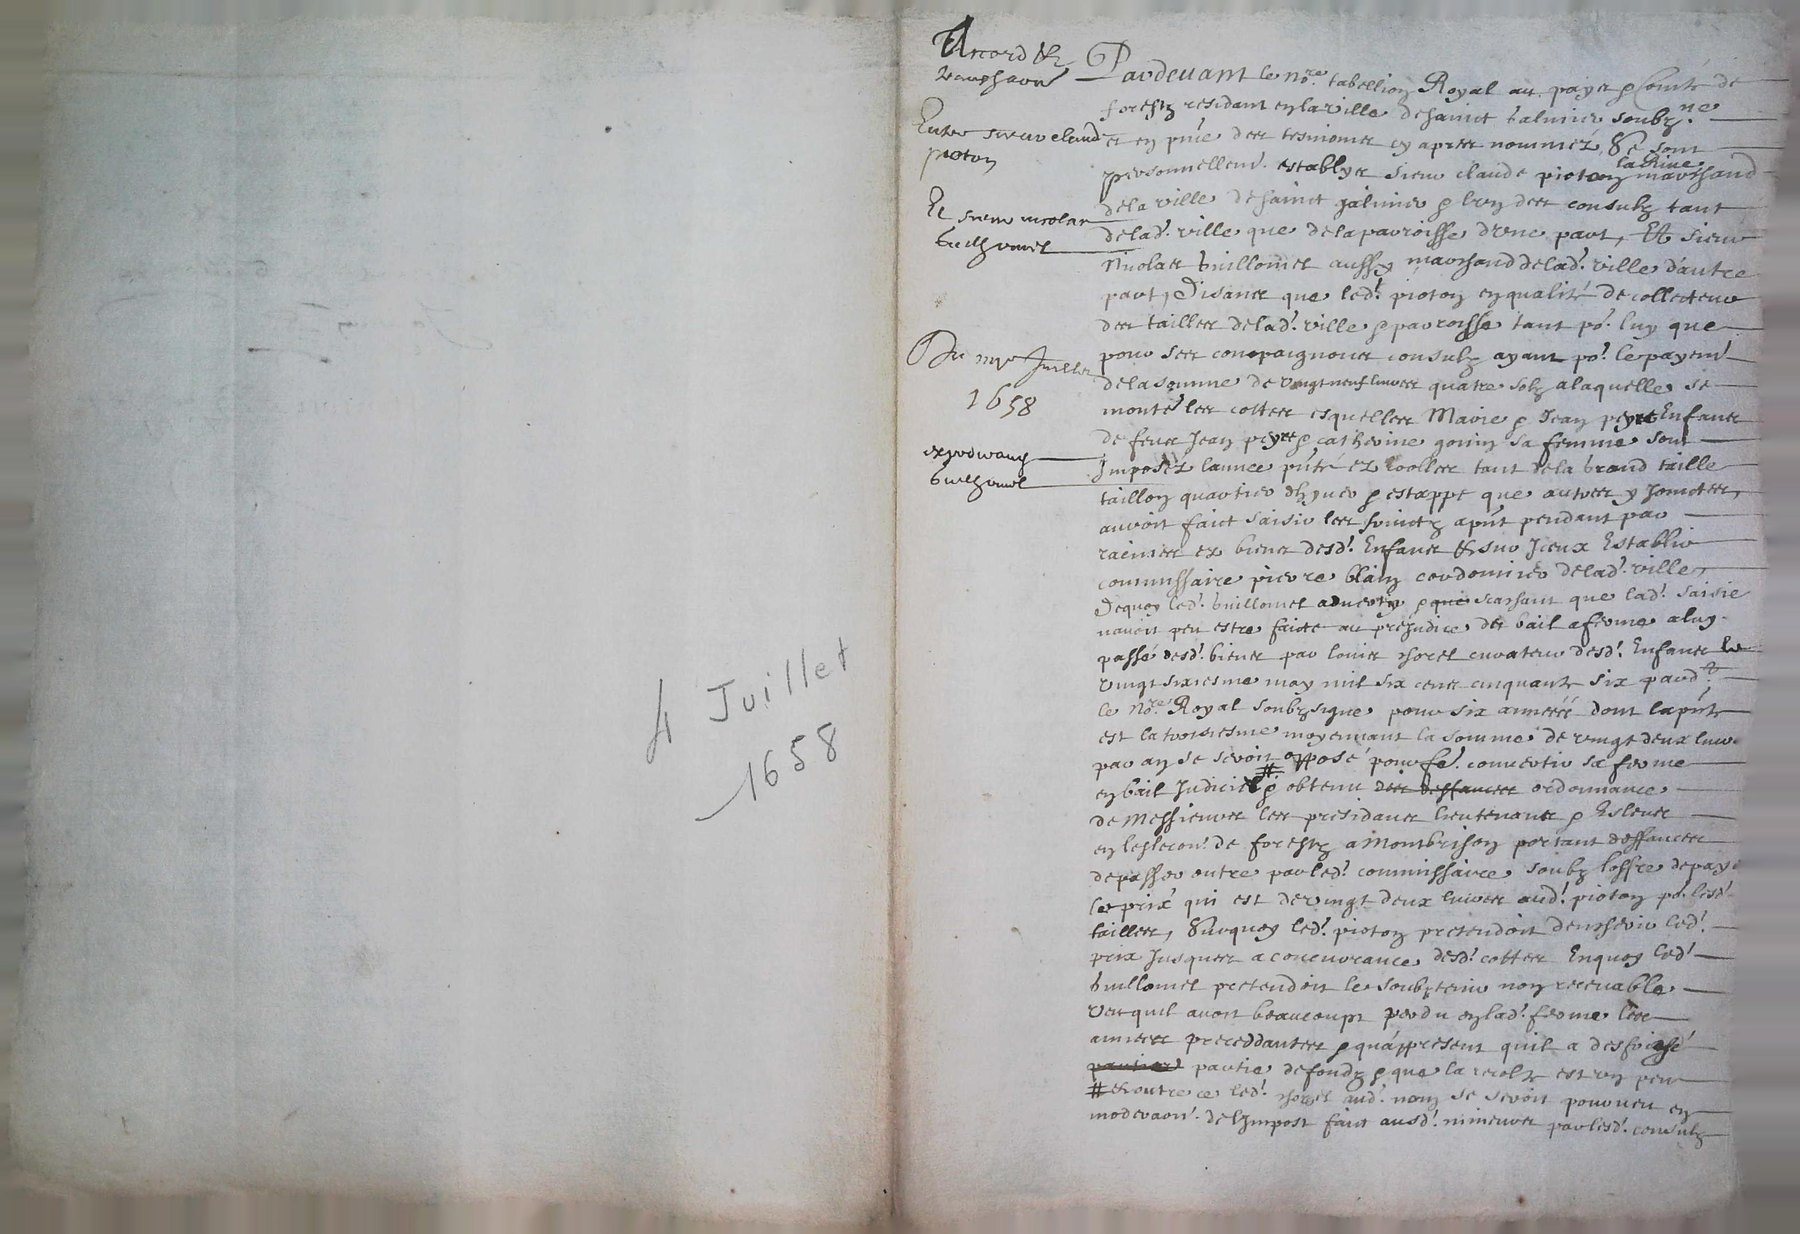 4 Juillet
1658
Accord &
Entre sieur claude
pioton
Et sieur nicolas
Guilhomet
Du iiiie Juillet
1658
Guilhomet
Pardevant le nore. tabellion Royal au payx & Comté de
forestz residant en la ville de sainct Galmier soubzne.
et en pnce des tesmoings cy apres nommez, Se sont
personnellemt. establys sieur claude pioton marchand
de la ville de sainct galmier & lun des consulz tant
de lad. ville que de la parroisse dune part, Et sieur
Nicolas Guillomet aussy marchand de lad. ville d'autre
part, Disants que led. pioton en qualité de collecteur
des tailles de lad. ville & parroisse tant po. luy que
pour ses compaignons consulz ayant po. le payemt
de la somme de vingt neuf livres quatre solz a laquelle se
monte les cottes esquelles Marie & Jean peyre Enfants
de feus Jean peyre & catherine gonin sa femme sont
Imposez lannee pnte ez roolles tant de la grand taille
taillon quartier dhyver & estappe que autres y Joinctes,
auroit faict saisir les fruictz apnt pendant par
racines ez biens desd. Enfans & sur Iceux Establir
commissaire pierre blain cordonnier de lad. ville,
Dequoy led. Guillomet adverty & scachant que lad. saisie
navoit peu estre faicte au prejudice du bail a ferme a luy
passé desd. biens par louis chorel curateur desd. Enfans le
vingt sixiesme may mil six cens cinquante six pard.t
le nore. Royal soubzsigne pour six années dont la pnte
est la troisiesme moyennant la somme de vingt deux livres
par an se seroit opposé pour fe. convertir sa ferme
en bail Judiciel # & obtenu des deffances ordonnance
de Messieurs les presidans lieutenant & Esleus
en leslecon. de forestz a Montbrison portant deffances
de passer outre par led. commissaire soubz loffre de payer
le prix qui est de vingt deux livres aud. pioton po. lesd.
tailles, Surquoy led. pioton pretendoit led.
prix Jusques a concurrance desd. cottes Enquoy led.
Guillomet pretendoit le soubztenir non recevable
veu quil avoit beaucoupt perdu en lad. ferme les
annees preceddantes & quapresent quil a
partie partie de fondz & que la recolte est un peu
# & outre ce led. chorel aud. nom se seroit pourveu en
moderaon. de limpost faict ausd. mineurs par lesd. consulz